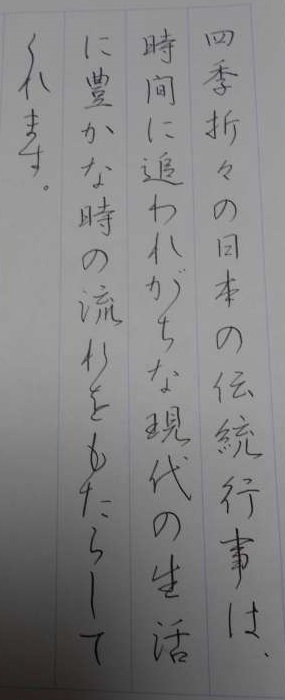 四季折々の日本の伝統行事は、
時間に追われがちな現代の生活
に豊かな時の流れをもたらして
くれます。